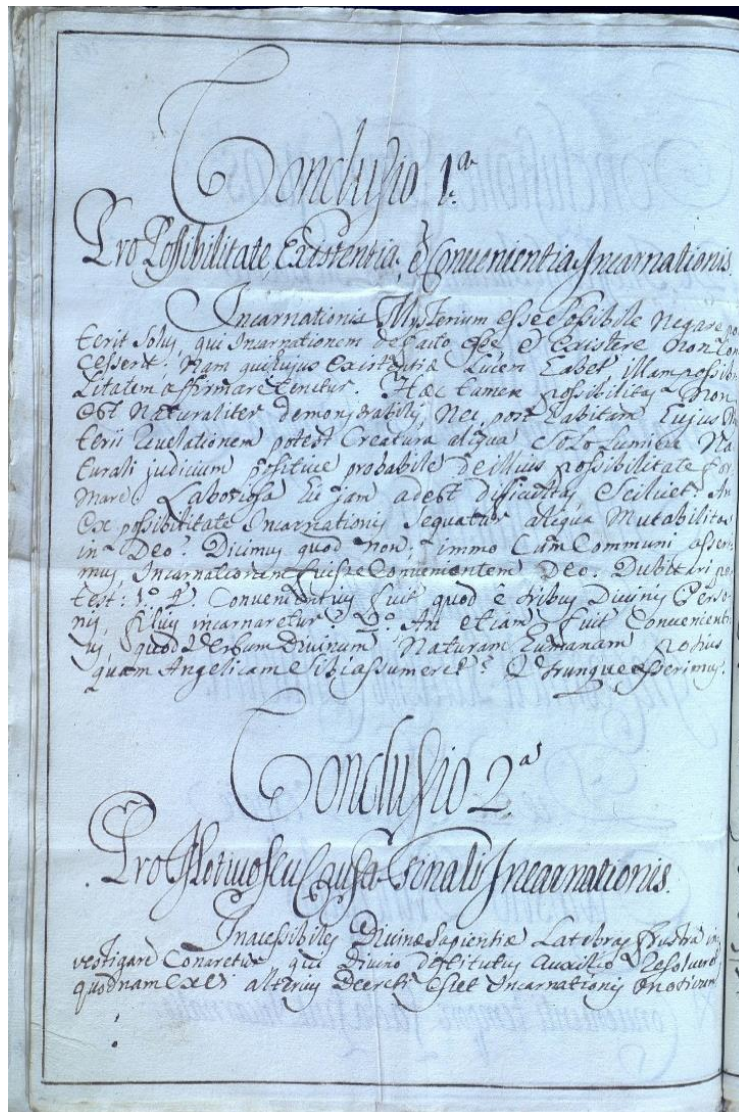 Conclusio 1.ª
Pro Possibilitate Existentia, è Convenientia Incarnationis.
Incarnationis Mysterium esse Possibile Negare po
terit Solus, qui Incarnationem de facto esse è Existere non Con
cesserit: Nam qui hujus existentiæ Lucem habet illam possibi
litatem affirmare tenetur. Hæc tamen possibilitas non
est Naturaliter demonstrabilis, Nec post habitam hujus
terii Revelationem potest Creatura aliqua Solo Lumine Na
turali judicium positive probabile de illius possibilitate for
mare. Laboriosa hic jam adest difficultas Scilicet: An
ex possibilitate Incarnationis Sequatur aliqua Mutabilitas
in Deo? Dicimus quod non; immo Cum Communi asseri
mus, Incarnationem fuisse Convenientem Deo. Dubitari po
test: 1.º Convenientius fuit quod è tribus Divinis Perso
nis, filius incarnaretur? 2.º An etiam fuit Convenienti
us, quod Verbum Divinum Naturam humanam potius
quam Angelicam Sibi assumeret? Utrunque asserimus.
Conclusio 2.ª
Pro Motivo seu Causa Finali Incarnationis.
Inacessibiles Divinæ Sapientiæ Latebras frustra in
vestigare Conaretur qui divino destitutus auxilio resolveret
quodnam ex vi alterius Decreti esset Incarnationis motivum